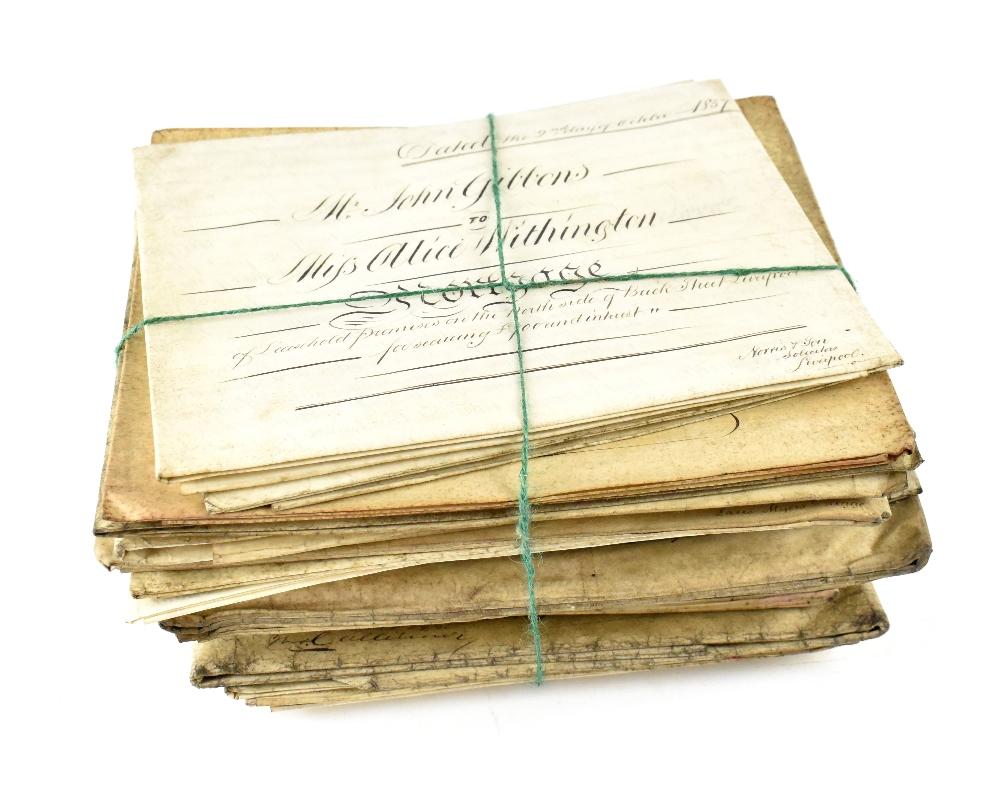 Dated the 2nd day of October 1857
Mr. John Gibbons
TO
Miss Alice Withington
Mortgage
of Leasehold premises on the North side of Buck Street Liverpool
for securing £ and interest
Norris & Son
Solicitors
Liverpool.